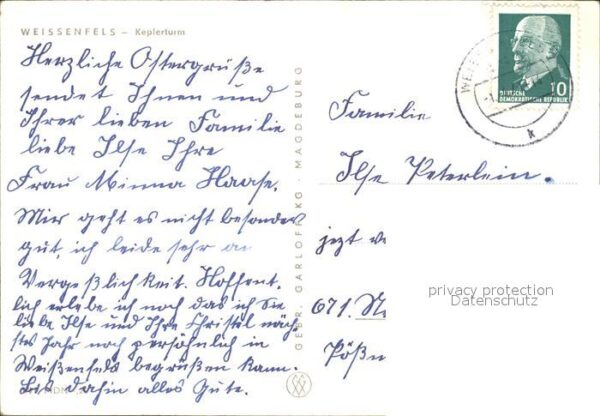 WEISSENFELS – Keplerturm
Herzliche Ostergrüße
sendet Ihnen und
Ihrer lieben Familie
liebe Ilse Ihre
Frau Minna Haase.
Mir geht es nicht besonders
gut, ich leide sehr an
Vergeßlichkeit. Hoffent,
lich erlebe ich noch das ich Sie
liebe Ilse und Ihre Christel näch,
stes Jahr noch persöhnlich in
Weißenfels begrüßen kann.
Bis dahin alles Gute.
GEBR. GARLOFF KG. MAGDEBURG
10
DEUTSCHE
DEMOKRATISCHE REPUBLIK
k
Familie
Ilse Peterlein.
jezt
671. N
Pößn
privacy protection
Datenschutz